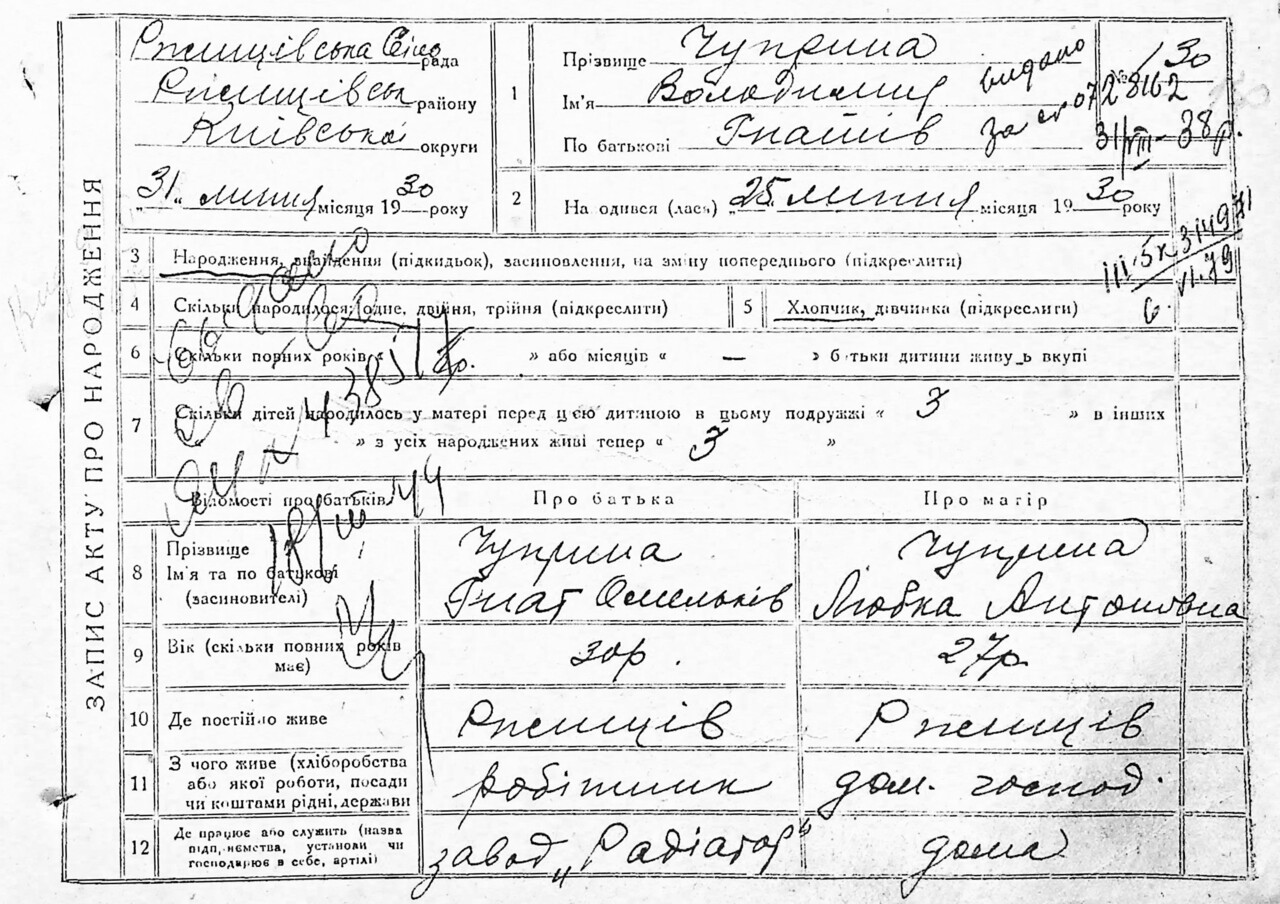 ЗАПИС АКТУ ПРО НАРОДЖЕННЯ
Ржищівська Сіл рада
Ржищівськ району
Київська округи
„31„ липня місяця 1930 року
1 Прізвище Чуприна
Ім'я Володимир
По батькові Гнатів
видано
за св 072 8162
31/VIII–38р.
№ 130
2 На одився (лась) „25„ липня місяця 1930 року
3 Народження, знайдення (підкидьок), засиновлення, на зміну попереднього (підкреслити)
4 Скільки народилося: одне, двійня, трійня (підкреслити)
5 Хлопчик, дівчинка (підкреслити)
6 Скільки повних років « » або місяців « — » батьки дитини живуть вкупі
7 Скільки дітей народилось у матері перед цією дитиною в цьому подружжі « 3 » в інших
» з усіх народжених живі тепер « 3 »
Відомості про батьків
Про батька
Про матір
8 Прізвище
Ім'я та по батькові
(засиновителі)
Чуприна
Гнат Омельків
Чуприна
Любка Антонівна
9 Вік (скільки повних років має)
30р.
27р.
10 Де постійно живе
Ржищів
Ржищів
11 З чого живе (хліборобства
або якої роботи, посади
чи коштами рідні, держави
робітник
дом. господ.
12 Де працює або служить (назва
підприємства, установи чи
господарює в себе, артілі)
завод „Радіатор"
дома